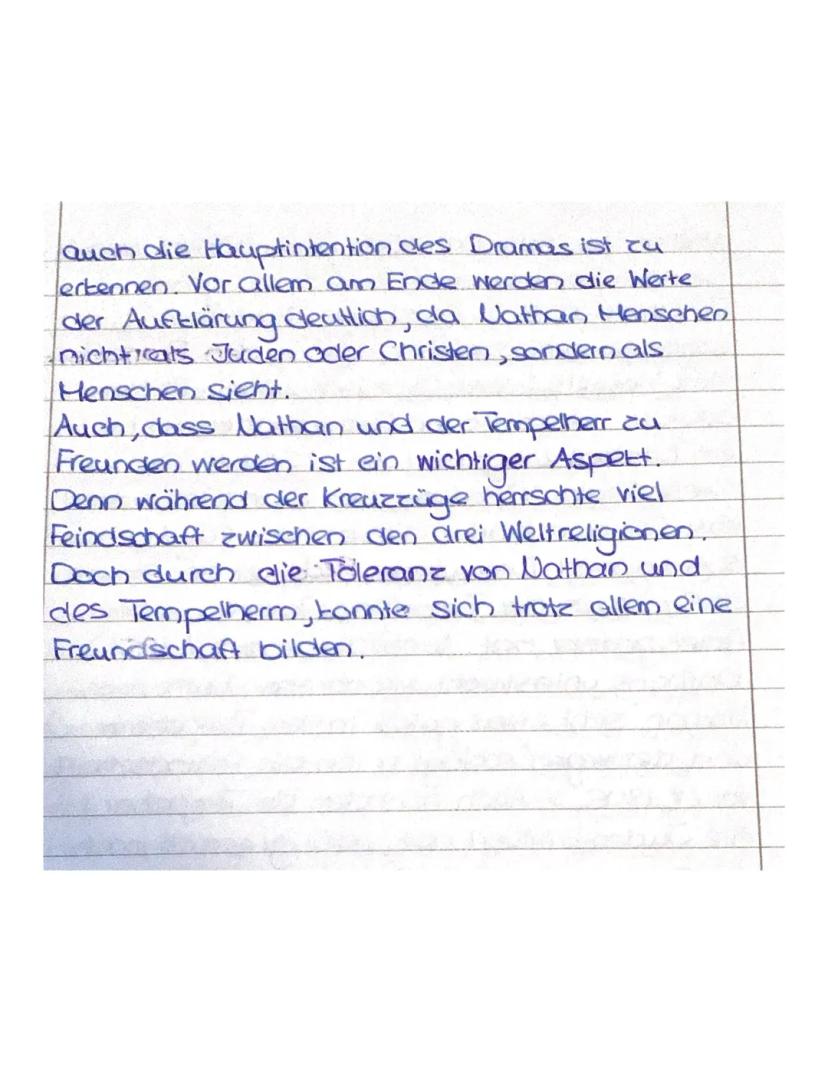 auch die Hauptintention des Dramas ist zu
erkennen. Vor allem am Ende werden die Werte
der Aufklärung deutlich, da Nathan Menschen
nicht als Juden oder Christen, sondern als
Menschen sieht.
Auch, dass Nathan und der Tempelherr zu
Freunden werden ist ein wichtiger Aspekt.
Denn während der Kreuzzüge herrschte viel
Feindschaft zwischen den drei Weltreligionen.
Doch durch die Toleranz von Nathan und
des Tempelherrn, konnte sich trotz allem eine
Freundschaft bilden.